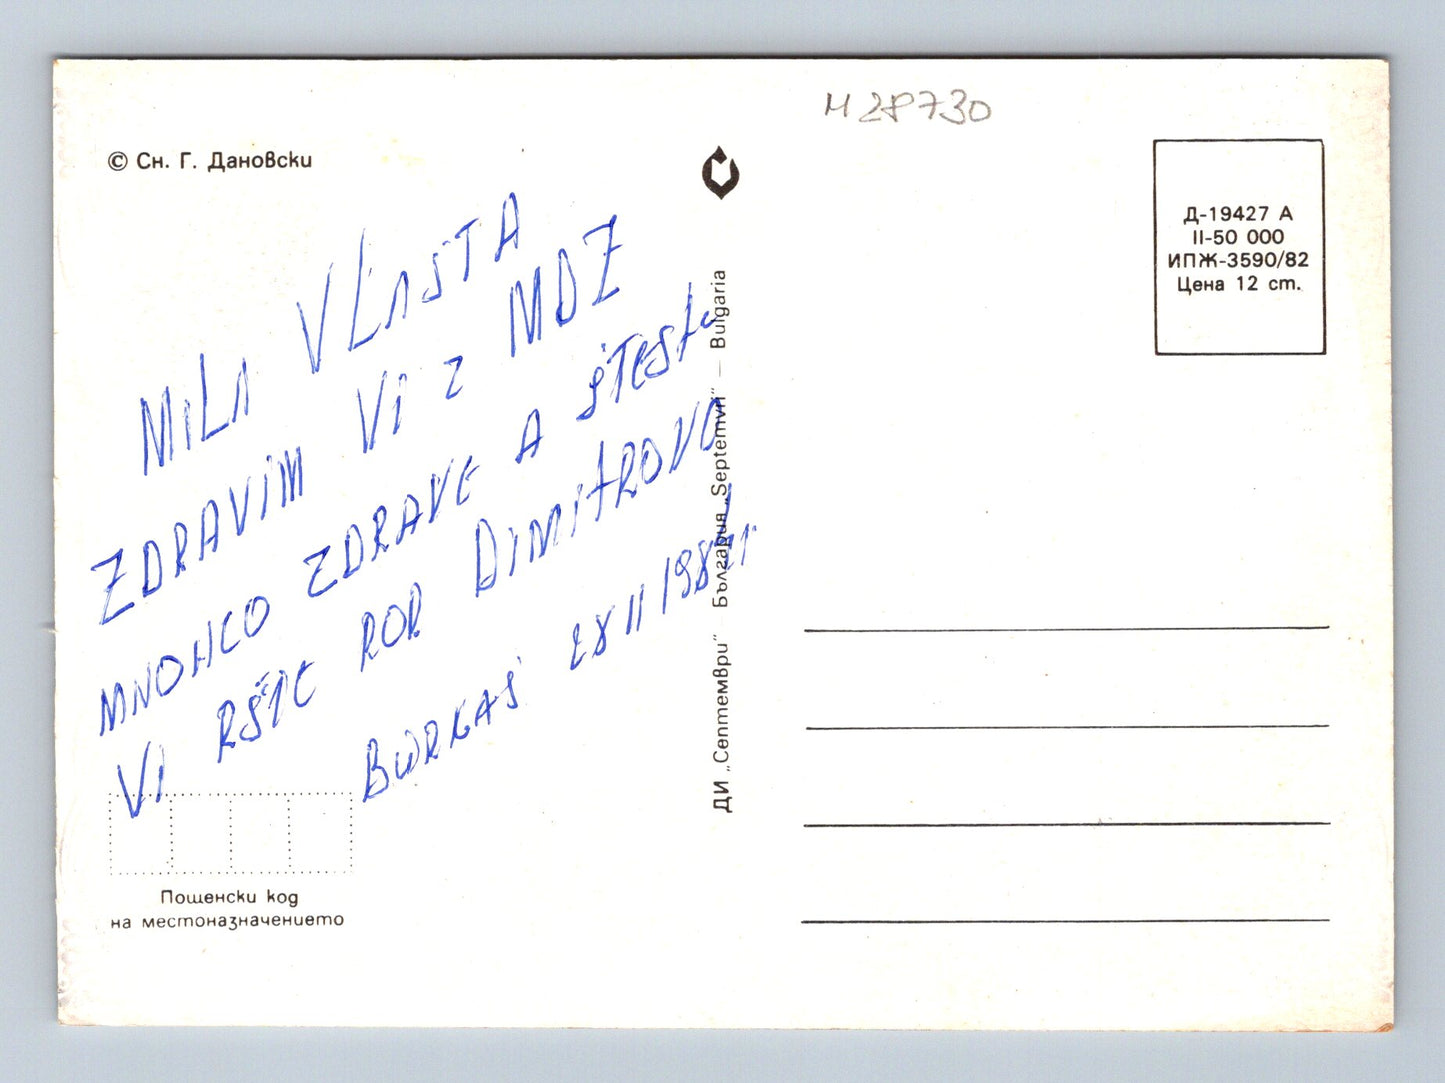 M 28730
© Сн. Г. Дановски
MILA VLASTA
ZDRAVIM VI Z MDZ
MNOHCO ZDRAVE A ŠTESTI
VI PŠIE ROD DIMITROVO
BURGAS 28 II 198
Пощенски код
на местоназначението
ДИ „Септември“ — България „Septemvri“ — Bulgaria
Д-19427 А
II-50 000
ИПЖ-3590/82
Цена 12 ст.